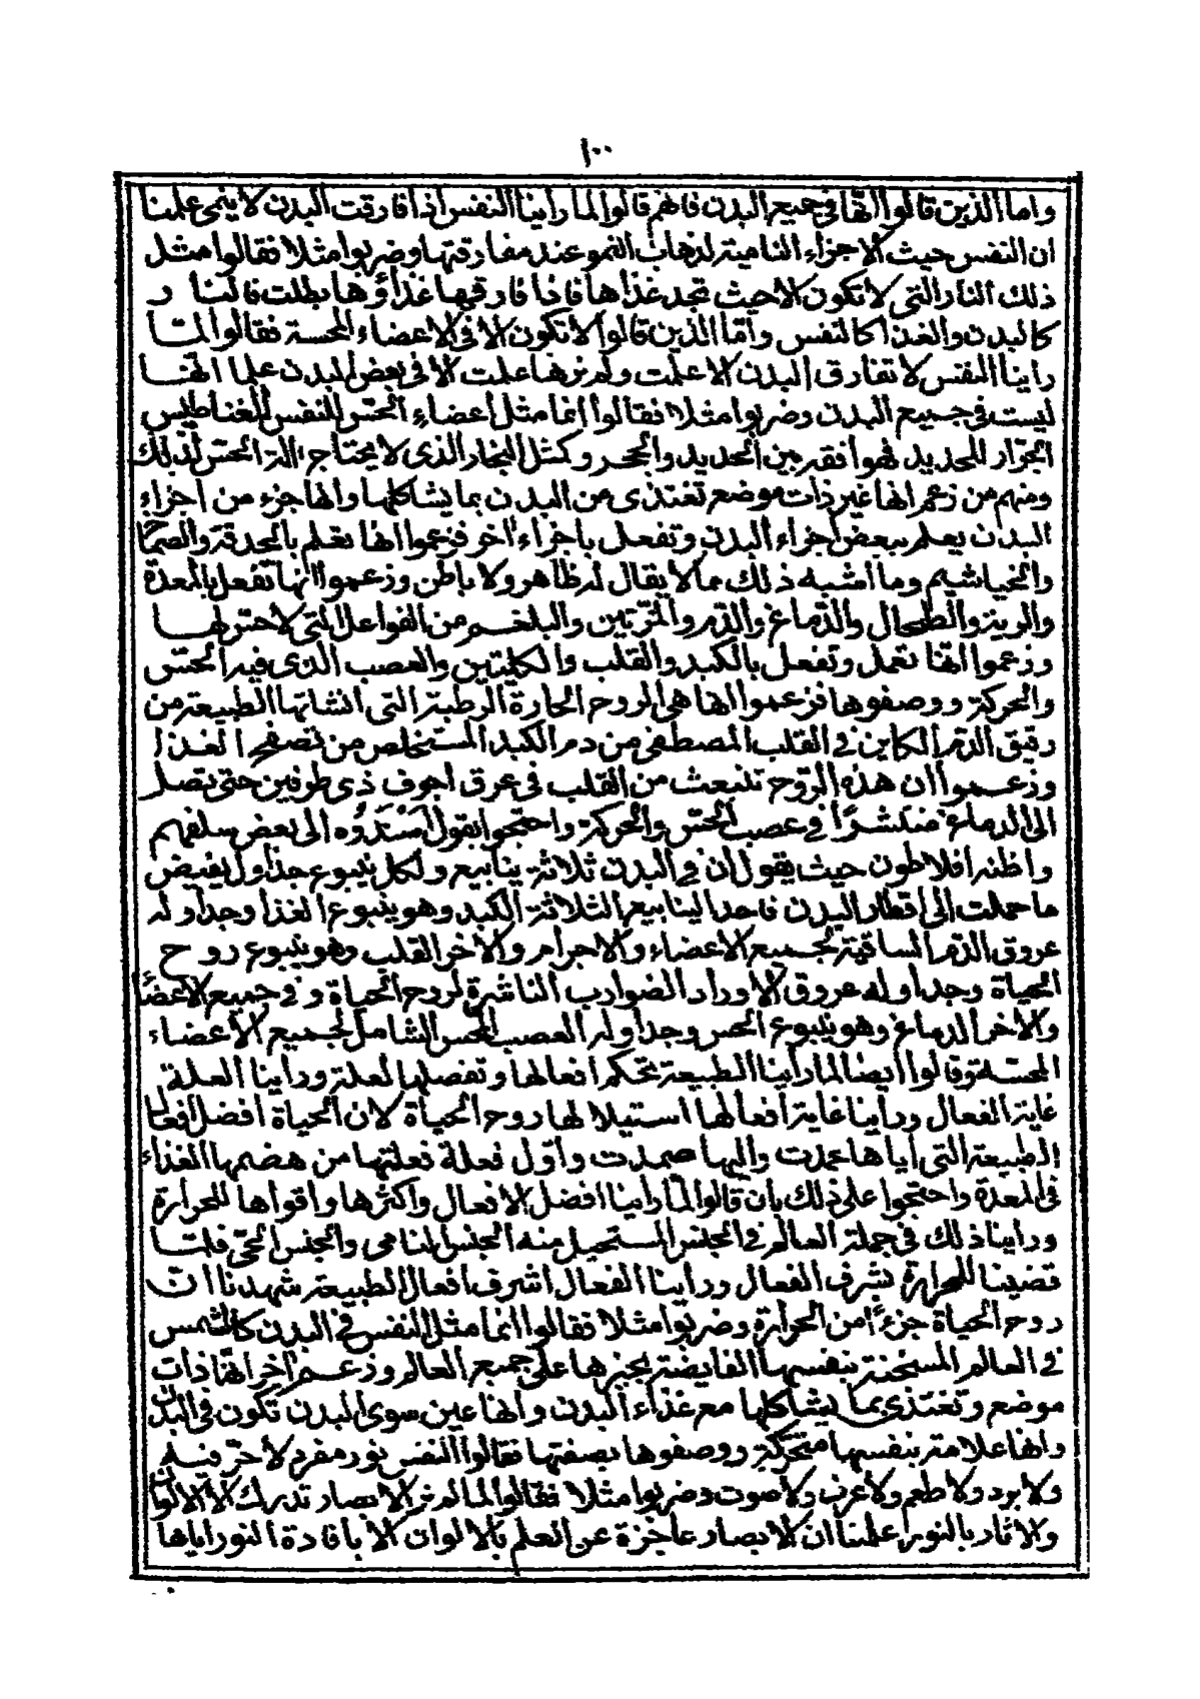 ١٠٠
واما الذين قالوا انها في جميع البدن فانهم قالوا لما راينا النفس اذا فارقت البدن لا ينمى علمنا
ان النفس حيث الاجزاء النامية لذهاب النمو عند مفارقتها وضربوا مثلا فقالوا مثل
ذلك النار التي لا تكون الا حيث تجد غذاها فاذا فارقها غذاؤها بطلت فالنار
كالبدن والغذا كالنفس وأما الذين قالوا لا تكون الا في الاعضاء المحسة فقالوا لمّا
راينا النفس لا تفارق البدن الا علمت ولم نرها علمت الا في بعض البدن علمنا انها
ليست في جميع البدن وضربوا مثلا فقالوا انما مثل اعضاء الحسّ للنفس المغناطيس
الجرّار للحديد فهو انفه بين الحديد والحجر وكمثل النجار الذى لا يحتاج الة الحسّ لذلك
ومنهم من زعم انها غير ذات موضع تغتذى من البدن بما يشاكلها وانها جزء من اجزاء
البدن يعلم ببعض اجزاء البدن وتفعل باجزاء اخر فزعموا انها تعلم بالحدقة والصماخ
والخياشيم وما أشبه ذلك مما لا يقال له ظاهر ولا باطن وزعموا انها تفعل بالمعدة
والرية والطحال والدّماغ والدّم والمرّتين والبلغم من الفواعل التى لاحسّ لها
وزعموا انّها تعمل وتفعل بالكبد والقلب والكليتين والعصب الذى فيه الحسّ
والحركة ووصفوها فزعموا انها هي الروح الحارة الرطبة التى انشاتها الطبيعة من
رقيق الدّم الكاين في القلب المصطفى من دم الكبد المستخلص من تصفح الغذا
وزعموا ان هذه الرّوح تنبعث من القلب في عرق اجوف ذي طرفين حتى تصل
الى الدماغ منتشرًا في عصب الحسّ والحركة واحتجوا بقول اسندوه الى بعض سلفهم
واظنه افلاطون حيث يقول ان في البدن ثلاثة ينابيع ولكل ينبوع جداول يفيض
ما حملت الى اقطار البدن فاحد الينابيع الثلاثة الكبد وهو ينبوع الغذا وجداوله
عروق الدّم الساقية لجميع الاعضاء والاجرام والاخر القلب وهو ينبوع روح
الحياة وجداوله عروق الاوراد الضوارب الناشرة لروح الحياة في جميع الاعضاء
والاخر الدماغ وهو ينبوع الحس وجداوله العصب الحس الشامل لجميع الأعضاء
المحسة وقالوا ايضا لما راينا الطبيعة تحكم افعالها وتفصلها لعلة وراينا العلة
غاية الفعال وراينا غاية أفعالها استيلا لها روح الحياة لان الحياة افضل افعال
الطبيعة التى اياها عمدت واليها صمدت واوّل فعلة فعلتها من هضمها الغذاء
في المعدة واحتجوا على ذلك بان قالوا لمّا راينا افضل الافعال واكثرها واقواها للحرارة
وراينا ذلك في جملة العالم في الجنس المستحيل منه الجنس النامى والجنس الحيّ فلمّا
قضينا للحرارة بشرف الفعال وراينا الفعال اشرف افعال الطبيعة شهدنا ان
روح الحياة جزءًا من الحرارة وضربوا مثلا فقالوا انما مثل النفس في البدن كالشمس
في العالم المسخنة بنفسها الفايضة بحيزها على جميع العالم وزعم اخر انّها ذات
موضع وتغتذى بما يشاكلها مع غذاء البدن وانها عين سوى البدن تكون في البدن
وانها علامة بنفسها متحرّكة ووصفوها بصفتها فقالوا النفس نور مفرد لا حرّ فيه
ولا برد ولا طعم ولا عرف ولا صوت وضربوا مثلا فقالوا لما لم نر الابصار تدرك الا الالوان
والاثار بالنور علمنا ان الابصار عاجزة عن العلم بالالوان الا بافادة النور اياها